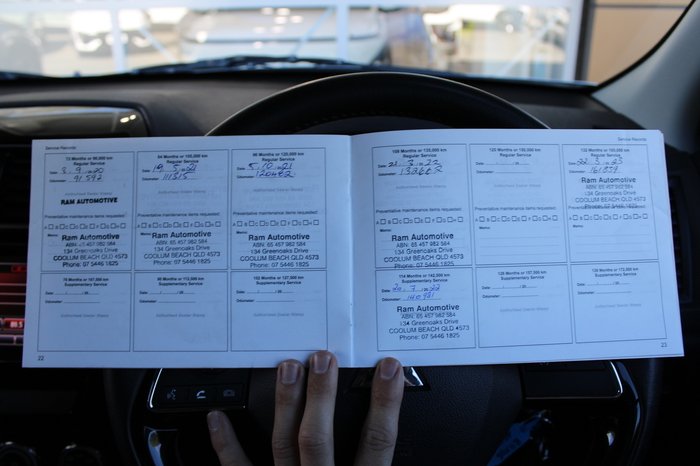 Service Records
72 Months or 90,000 km
Regular Service
Date: 3.9.2020
Odometer: 91592
Authorised Dealer Stamp
RAM AUTOMOTIVE
Preventative maintenance items requested:
A B C D E F G H
Memo:
Ram Automotive
ABN: 65 457 982 584
134 Greenoaks Drive
COOLUM BEACH QLD 4573
Phone: 07 5446 1825
84 Months or 105,000 km
Regular Service
Date: 19.5.2021
Odometer: 111515
Authorised Dealer Stamp
Preventative maintenance items requested:
A B C D E F G H
Memo:
Ram Automotive
ABN: 65 457 982 584
134 Greenoaks Drive
COOLUM BEACH QLD 4573
Phone: 07 5446 1825
96 Months or 120,000 km
Regular Service
Date: 5.10.2021
Odometer: 120482
Authorised Dealer Stamp
Preventative maintenance items requested:
A B C D E F G H
Memo:
Ram Automotive
ABN: 65 457 982 584
134 Greenoaks Drive
COOLUM BEACH QLD 4573
Phone: 07 5446 1825
Supplementary Service
Date: . . 20
Odometer:
Authorised Dealer Stamp
Supplementary Service
Date: . . 20
Odometer:
Authorised Dealer Stamp
102 Months or 127,500 km
Supplementary Service
Date: . . 20
Odometer:
Authorised Dealer Stamp
22
Service Records
108 Months or 135,000 km
Regular Service
Date: 22.3.2022
Odometer: 132662
Authorised Dealer Stamp
Preventative maintenance items requested:
A B C D E F G H
Memo:
Ram Automotive
ABN: 65 457 982 584
134 Greenoaks Drive
COOLUM BEACH QLD 4573
Phone: 07 5446 1825
120 Months or 150,000 km
Regular Service
Date: . . 20
Odometer:
Authorised Dealer Stamp
Preventative maintenance items requested:
A B C D E F G H
Memo:
132 Months or 165,000 km
Regular Service
Date: 22.3.2023
Odometer:
Ram Automotive
ABN: 65 457 982 584
134 Greenoaks Drive
COOLUM BEACH QLD 4573
Phone: 07 5446 1825
Preventative maintenance items requested:
A B C D E F G H
Memo:
114 Months or 142,500 km
Supplementary Service
Date: 20.7.2022
Odometer:
Ram Automotive
ABN: 65 457 982 584
134 Greenoaks Drive
COOLUM BEACH QLD 4573
Phone: 07 5446 1825
126 Months or 157,500 km
Supplementary Service
Date: . . 20
Odometer:
Authorised Dealer Stamp
138 Months or 172,500 km
Supplementary Service
Date: . . 20
Odometer:
Authorised Dealer Stamp
23